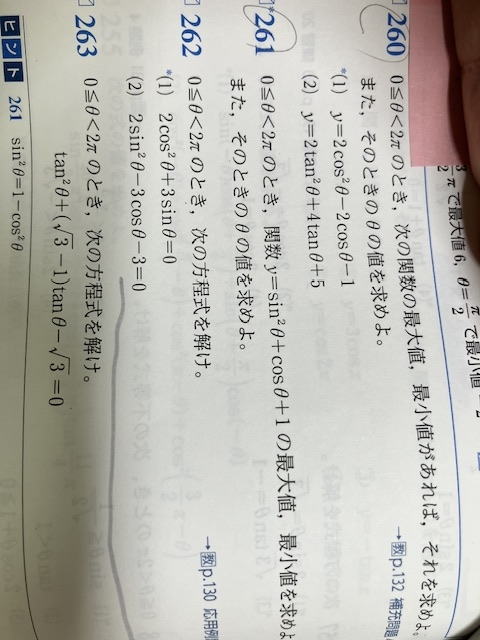 3/2 π で最大値 6, θ=π/2 で最小値
260 0≦θ<2π のとき, 次の関数の最大値, 最小値があれば, それを求めよ。
また, そのときの θ の値を求めよ。
→教p.132 補充問題
*(1) y=2cos²θ−2cosθ−1
(2) y=2tan²θ+4tanθ+5
*261 0≦θ<2π のとき, 関数 y=sin²θ+cosθ+1 の最大値, 最小値を求めよ
また, そのときの θ の値を求めよ。
262 0≦θ<2π のとき, 次の方程式を解け。
→教p.130 応用例
*(1) 2cos²θ+3sinθ=0
(2) 2sin²θ−3cosθ−3=0
263 0≦θ<2π のとき, 次の方程式を解け。
tan²θ+(√3−1)tanθ−√3=0
ヒント 261 sin²θ=1−cos²θ